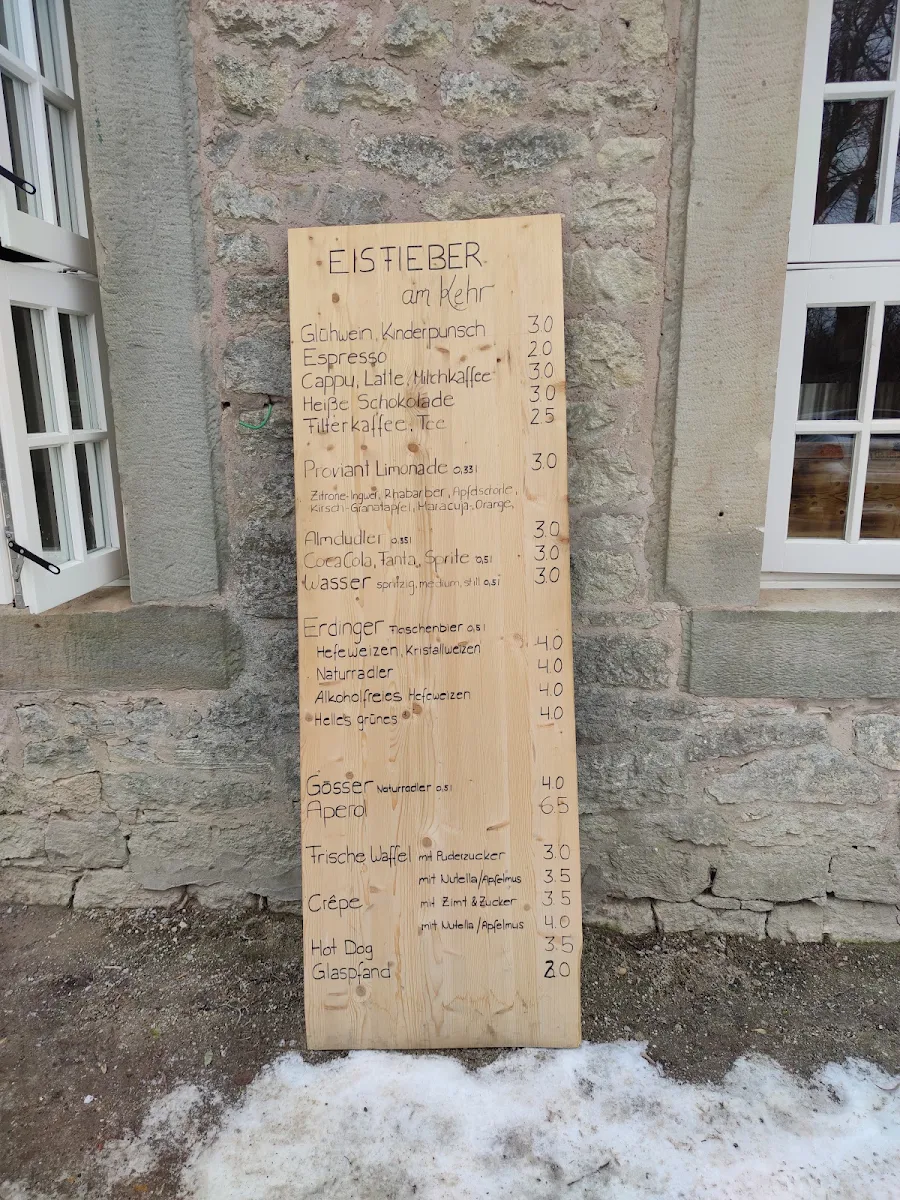 EISFIEBER
am Kehr
Glühwein, Kinderpunsch 3.0
Espresso 2.0
Cappu, Latte, Milchkaffee 3.0
Heiße Schokolade 3.0
Filterkaffee, Tee 2.5
Proviant Limonade 0,33l 3.0
Zitrone-Ingwer, Rhabarber, Apfelschorle,
Kirsch-Granatapfel, Maracuja-Orange,
Almdudler 0,35l 3.0
CocaCola, Fanta, Sprite 0,5l 3.0
Wasser spritzig, medium, still 0,5l 3.0
Erdinger Flaschenbier 0,5l
Hefeweizen, Kristallweizen 4.0
Naturradler 4.0
Alkoholfreies Hefeweizen 4.0
Helles grünes 4.0
Gösser Naturradler 0,5l 4.0
Aperol 6.5
Frische Waffel mit Puderzucker 3.0
mit Nutella/Apfelmus 3.5
Crêpe mit Zimt & Zucker 3.5
mit Nutella/Apfelmus 4.0
Hot Dog 3.5
Glaspfand 2.0